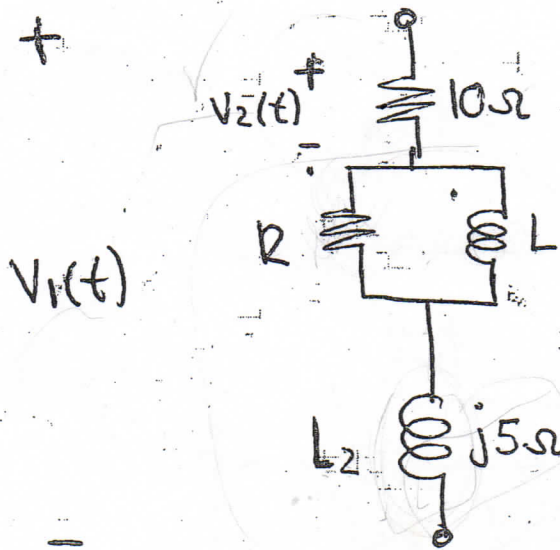 +
V2(t)
+
-
10Ω
R
L
V1(t)
L2
j5Ω
-